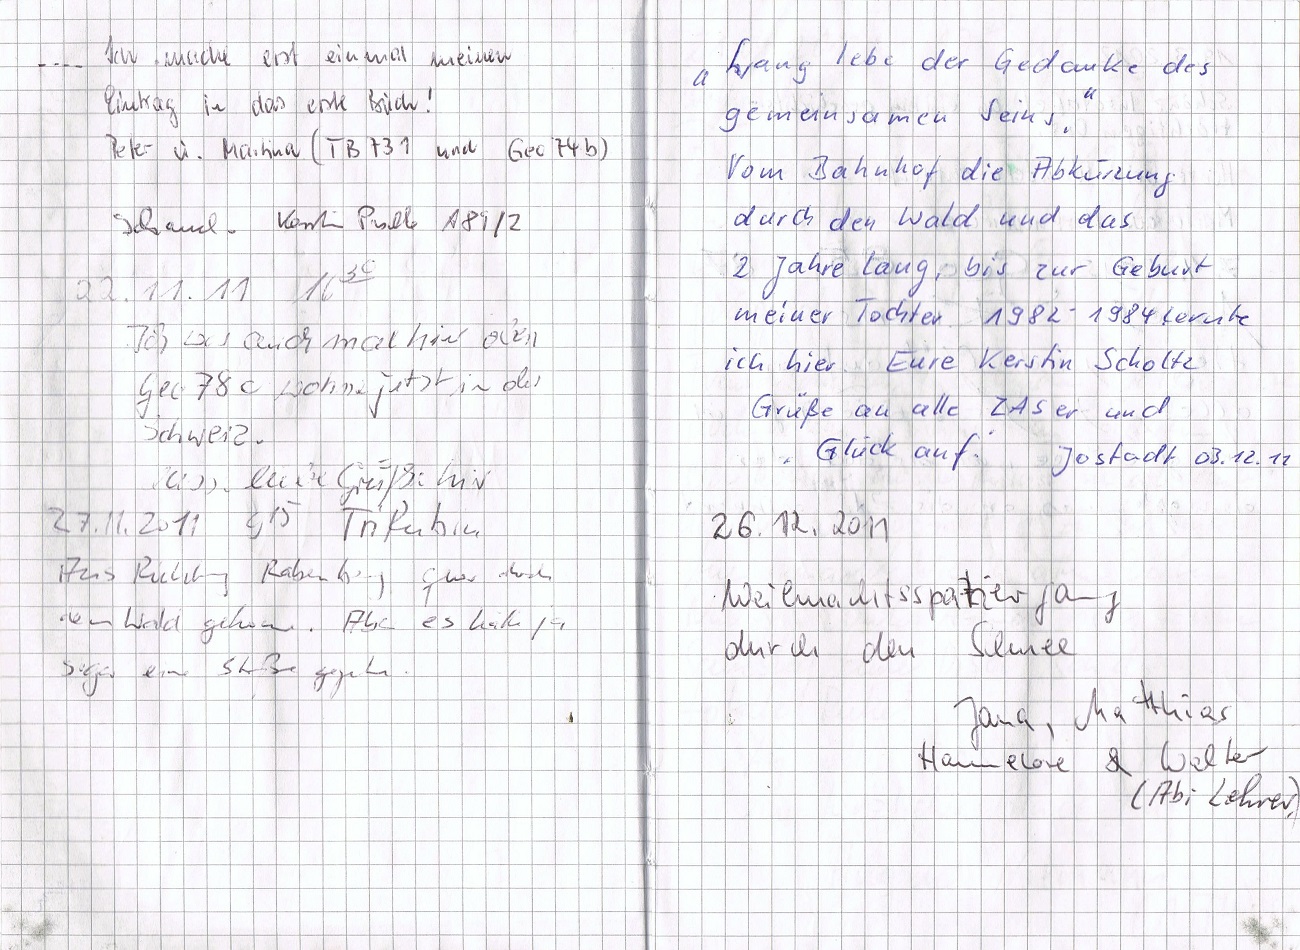 ---- Ich mache erst einmal meinen
Eintrag in das erste Buch!
Peter u. Martina (TB 731 und Geo 74b)
Kerstin A81/2
22.11.11 16 30
Ich war auch mal hier
Geo 78c wohne jetzt in der
Schweiz.
Grüße hier
27.11.2011
Aus Richtung quer durch
den Wald gekommen. Aber es hätte ja
sogar eine Straße gegeben.
„Lang lebe der Gedanke des
gemeinsamen Seins."
Vom Bahnhof die Abkürzung
durch den Wald und das
2 Jahre lang, bis zur Geburt
meiner Tochter 1982-1984 lernte
ich hier Eure Kerstin Scholtz
Grüße an alle ZASer und
"Glück auf" Jöstadt 03.12.11
26.12.2011
Weihnachtsspaziergang
durch den Schnee
Jana, Matthias
Hannelore & Walter
(Abi Lehrer)